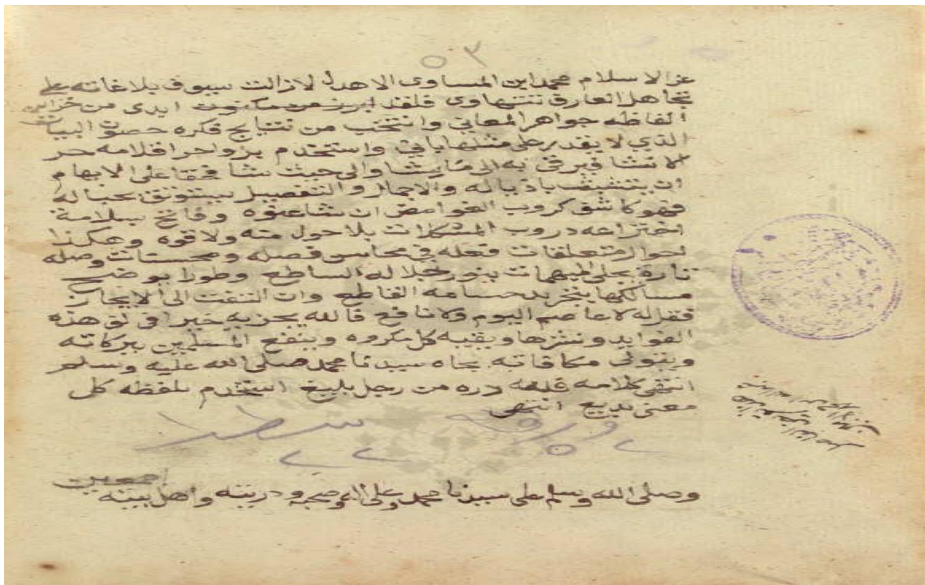 ٥٣
عز الاسلام محمد ابن المساوى الاهدل لازالت سيوف بلاغاته على
تجاهل العارف تنتهاوى فلقد ابرز من مكنون ايدى من خزاين
الفاظه جواهر المعاني وانتخب من نتايج فكره حصون البيان
الذي لا يقدر على مثلها باني واستخدم بزواجر اقلامه حر
كلا تشا فيرقى به الى مايشا والى حيث شا فرقا على الابهام
ان يتشبث باذياله والاجمال والتفصيل يستوثق بحباله
فهو كاشف كروب الغوامض ان شاعنوه وفاتح بسلامة
اختراعه دروب المشكلات بلا حول منه ولا قوه وهكذا
احوال متعلقات فعله في محاسن فصله ومحسنات وصله
تارة يجلى المبهمات بنور جلاله الساطع وطورا يوضح
مسالكها بتجريد حسامه القاطع وان التفت الى الايجاز
فقرله لا عاصم اليوم ولا نافع فالله يجزيه خيرا في لق هذه
الفوايد ونشرها ويقيه كل مكروه وينفع المسلمين ببركاته
ويتولى مكافاته بجاه سيدنا محمد صلى الله عليه وسلم
انتهى كلامه فلله دره من رجل بليغ استخدم بلفظه كل
معنى بديع انتهى
ورقه سطر
وصلى الله وسلم على سيدنا محمد وعلى اله وصحبه وذريته واهل بيته
اجمعين